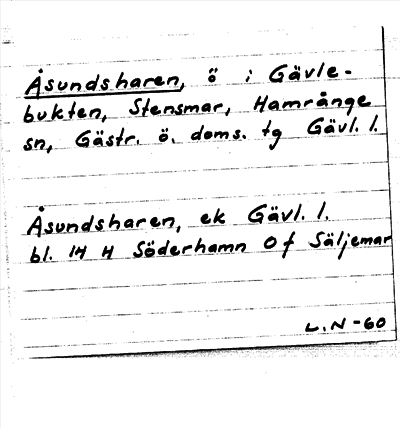 Åsundsharen, ö i Gävle-
bukten, Stensmar, Hamrånge
sn, Gästr. ö. doms. tg Gävl. l.
Åsundsharen, ek Gävl. l.
bl. 14 H Söderhamn O f Säljemar
L.N-60